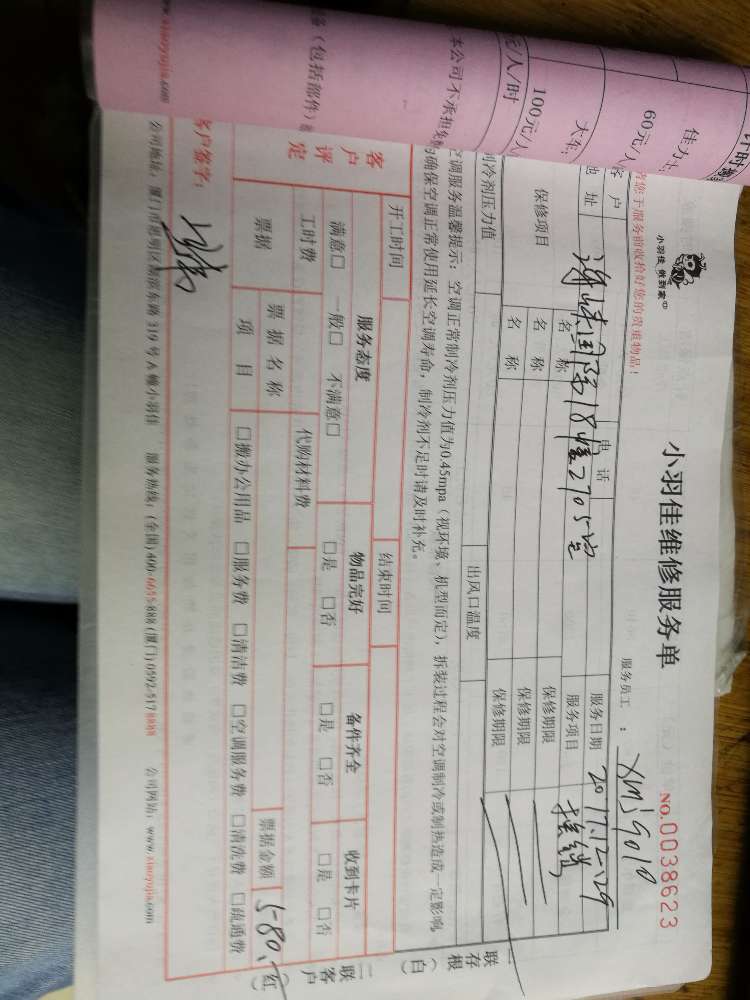 小羽佳维修服务单
小羽佳 做到家
NO.0038623
服务员工：XMJ9010
客户
电话
服务日期
2017.12.29
地址
国际18幢2705室
服务项目
保修项目
名称
保修期限
名称
保修期限
名称
保修期限
制冷剂压力值
出风口温度
空调服务温馨提示：空调正常制冷剂压力值为0.45mpa（视环境、机型而定），拆装过程会对空调制冷或制热造成一定影响，
的确保空调正常使用延长空调寿命，制冷剂不足时请及时补充。
开工时间
结束时间
客户评定
服务态度
物品完好
备件齐全
收到卡片
满意□ 一般□ 不满意□
□是 □否
□是 □否
□是 □否
工时费
代购材料费
票据
票据名称
票据金额
580.
项目
□搬办公用品 □服务费 □清洁费 □空调服务费 □清洗费 □疏通费
客户签字：
公司地址：厦门市思明区湖滨东路319号A幢小羽佳 服务热线：(全国)400-6055-888 (厦门)0592-5178888 公司网站：www.xiaoyujia.com
一联存根（白）
二联客户（红）
60元/人
大车：
100元/人
元/人/时
本公司不承担
（包括部件）
www.xiaoyujia.com